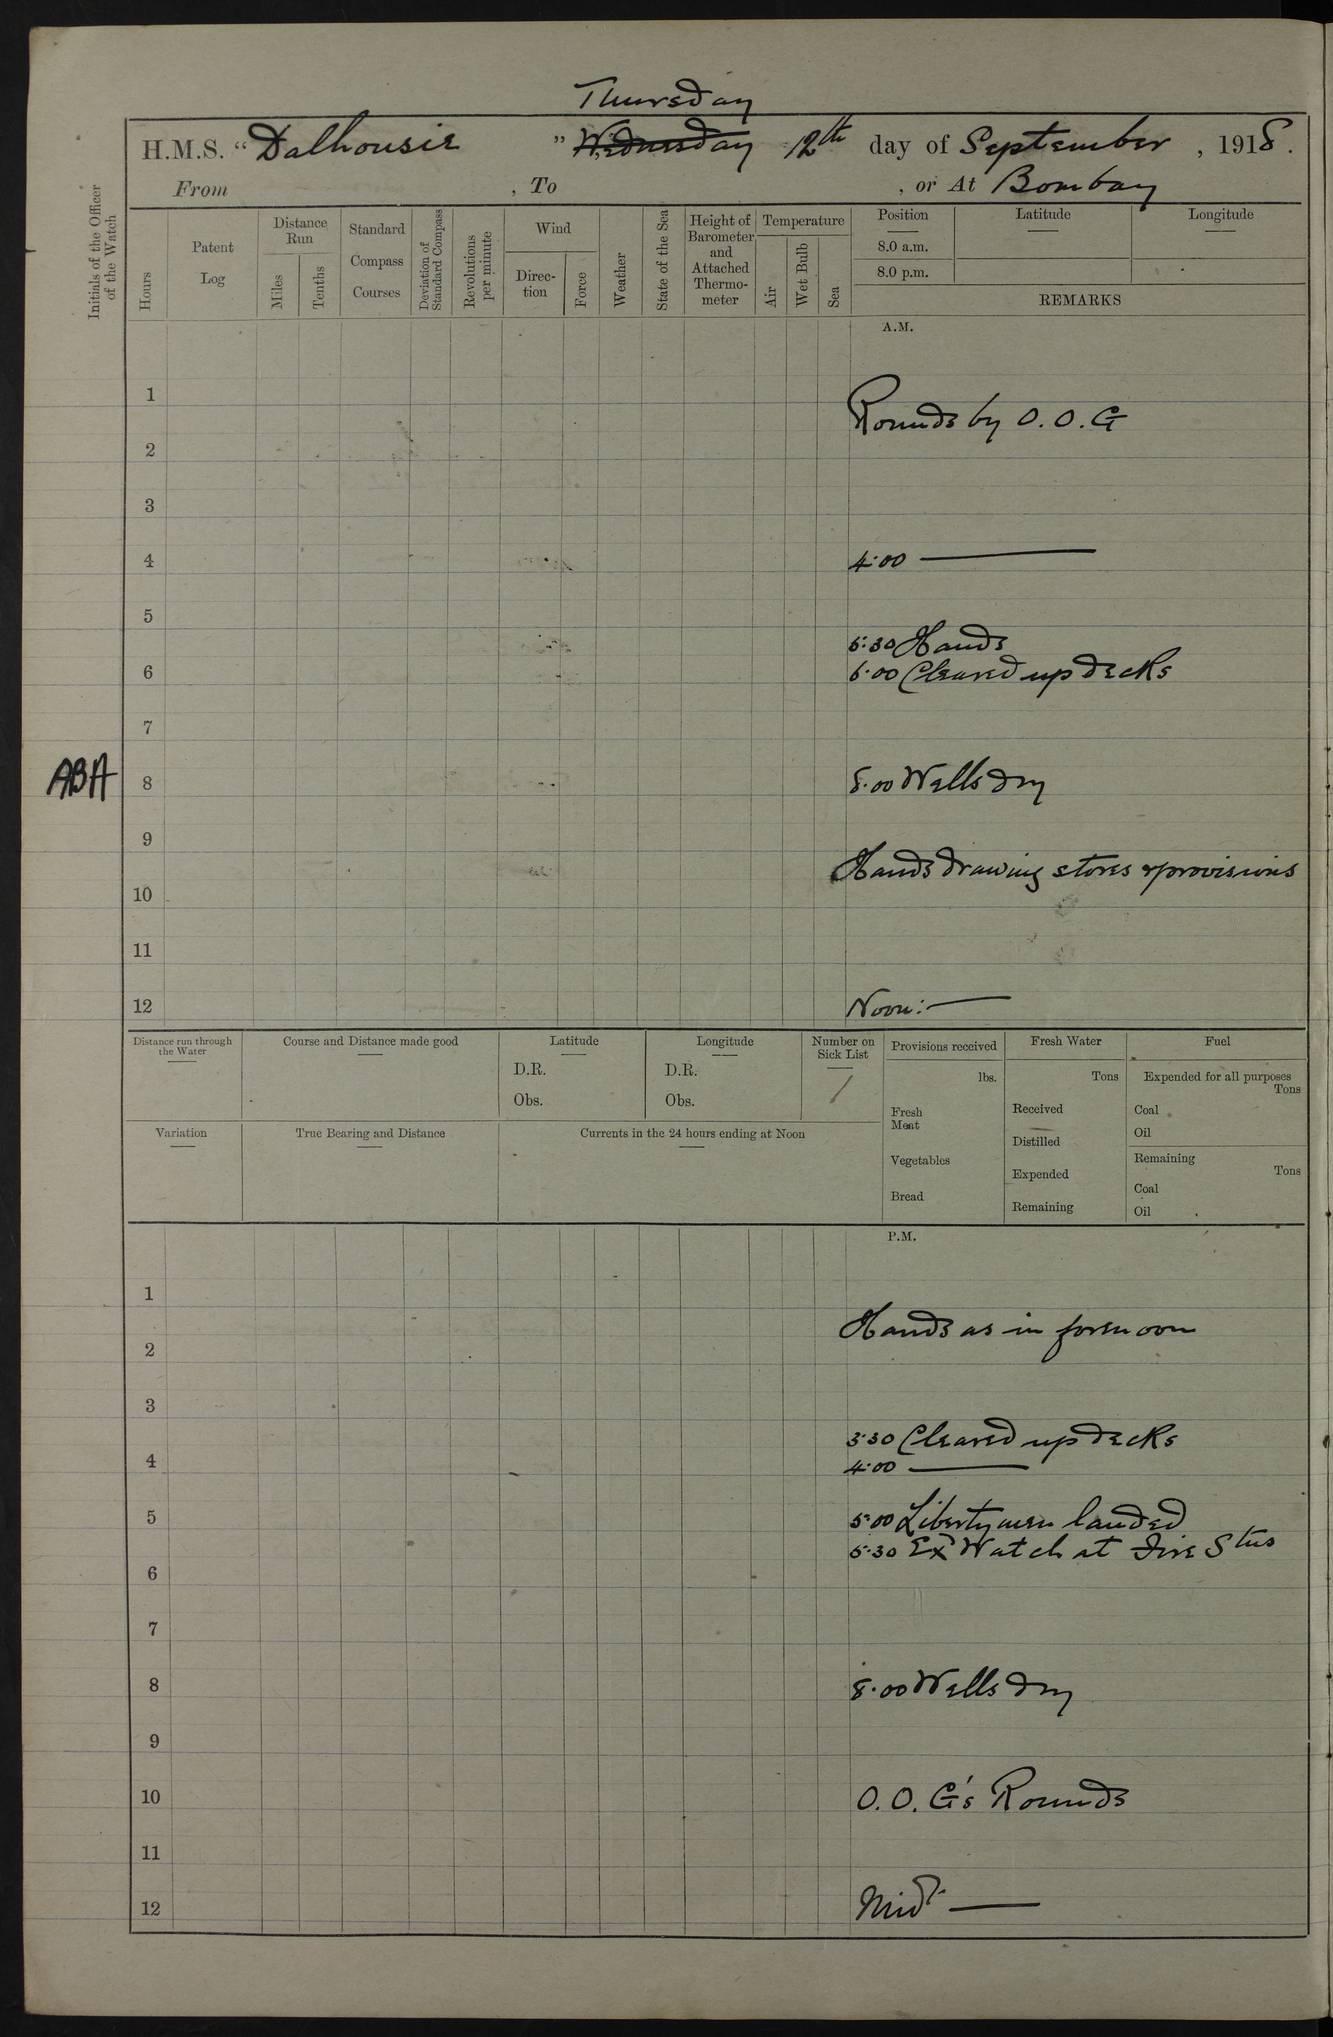 Thursday
H.M.S. “Dalhousie ” Wednesday 12th day of September , 1918.
From , To , or At Bombay
Initials of the Officer of the Watch
Hours
Patent Log
Distance Run
Miles
Tenths
Standard Compass Courses
Deviation of Standard Compass
Revolutions per minute
Wind
Direc-tion
Force
Weather
State of the Sea
Height of Barometer and Attached Thermo-meter
Temperature
Air
Wet Bulb
Sea
Position Latitude Longitude
8.0 a.m.
8.0 p.m.
REMARKS
A.M.
1
Rounds by O.O.G
2
3
4 4·00 —
5
5·30 Hands
6 6·00 Cleared up decks
7
ABA 8 8·00 Wells dry
9
Hands drawing stores & provisions
10
11
12 Noon:—
Distance run through the Water
Course and Distance made good
Latitude
D.R.
Obs.
Longitude
D.R.
Obs.
Number on Sick List
1
Provisions received
lbs.
Fresh Meat
Vegetables
Bread
Fresh Water
Tons
Received
Distilled
Expended
Remaining
Fuel
Expended for all purposes
Tons
Coal
Oil
Remaining
Tons
Coal
Oil
Variation
True Bearing and Distance
Currents in the 24 hours ending at Noon
P.M.
1
Hands as in forenoon
2
3
3·30 Cleared up decks
4 4·00 —
5 5·00 Libertymen landed
5·30 Ex Watch at Fire Stns
6
7
8 8·00 Wells dry
9
10 O.O.G's Rounds
11
12 Midt —